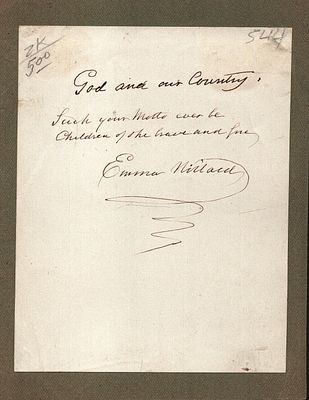 2K
500
544
God and our Country.
Such your Motto ever be
Children of the brave and free
Emma Willard